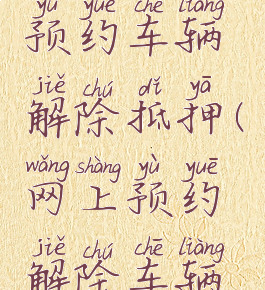 yù yuē chē liàng
预约车辆
jiě chú dǐ yā
解除抵押(
wǎng shàng yù yuē
网上预约
jiě chú chē liàng
解除车辆